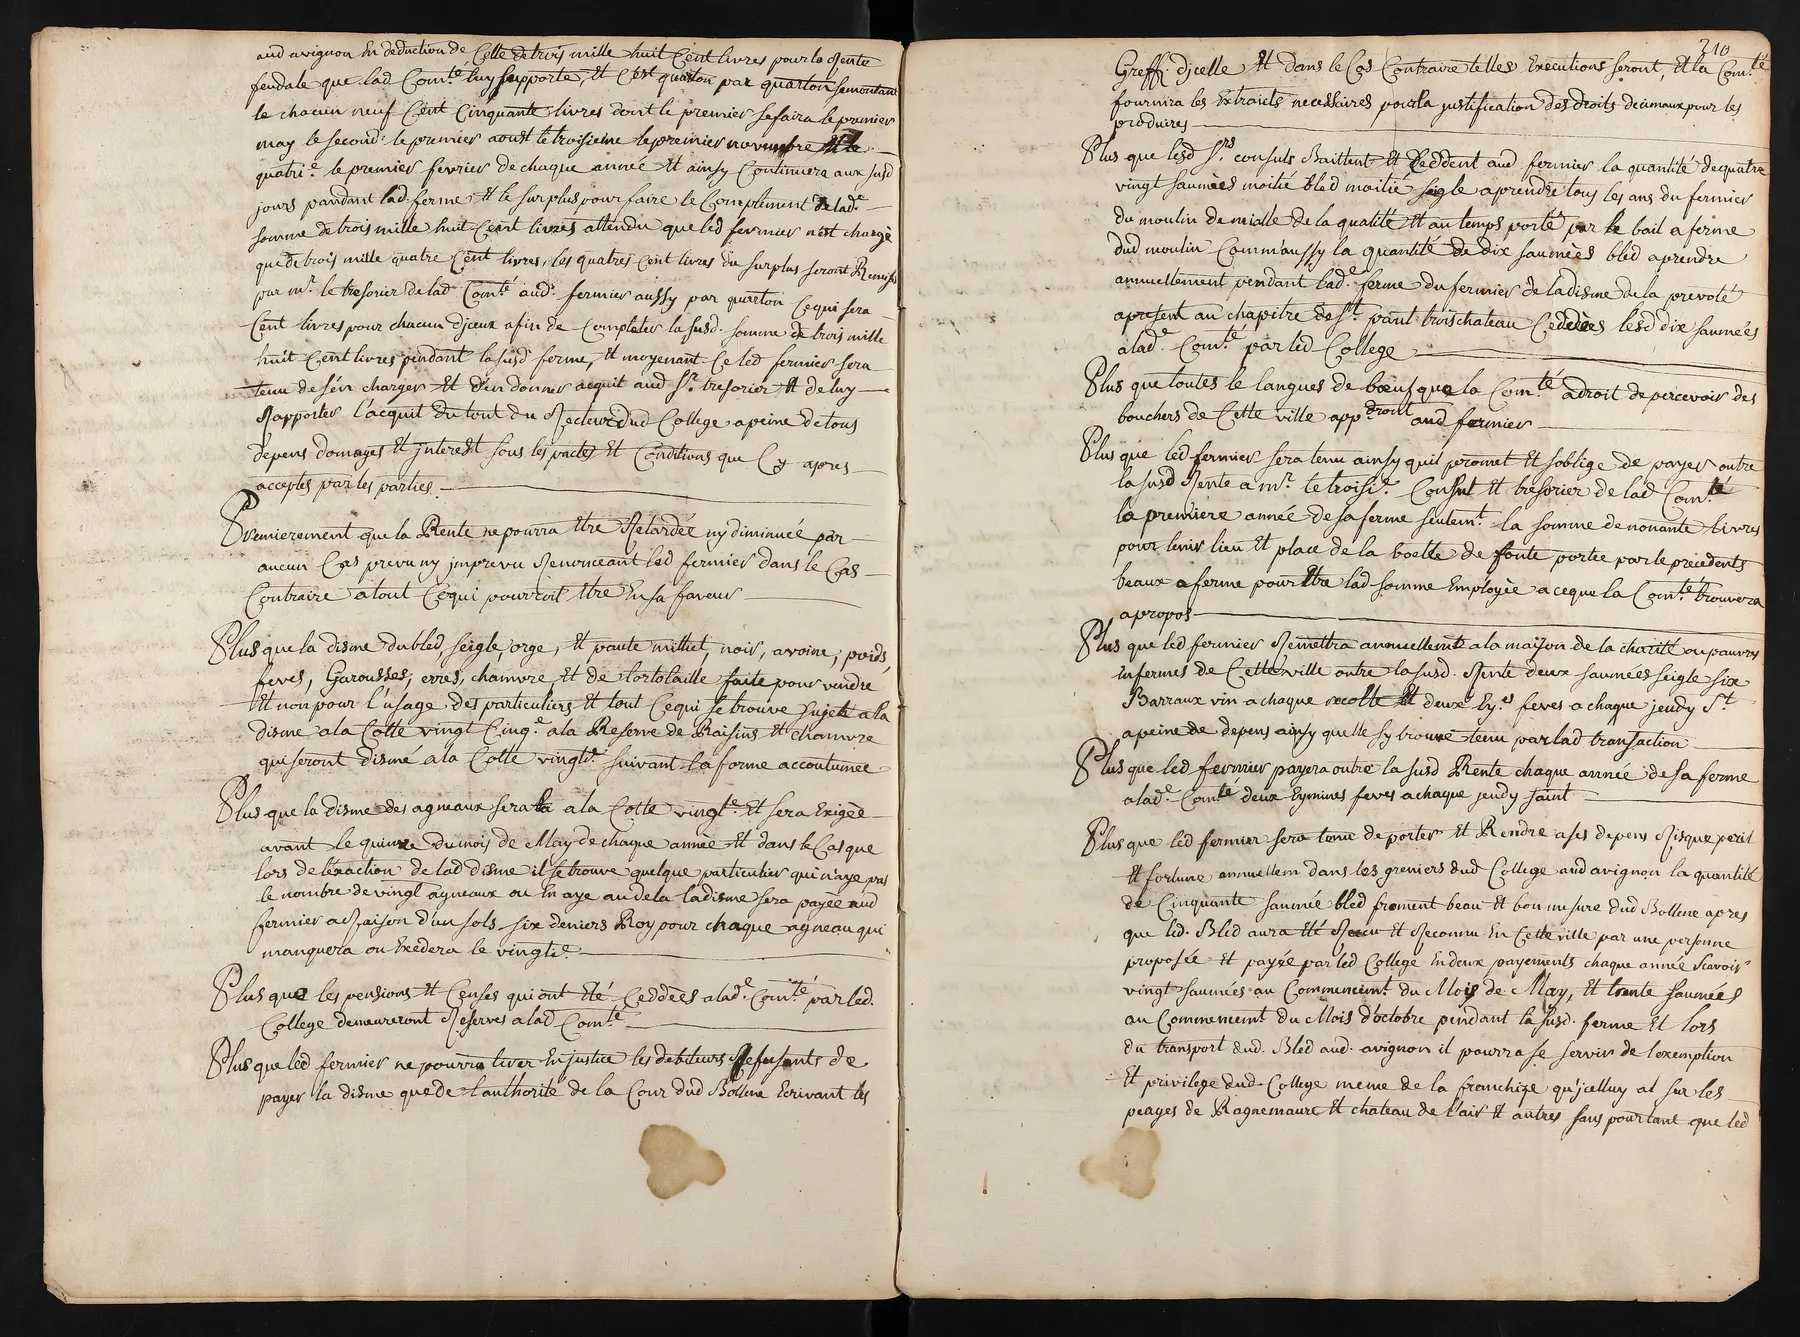 aud avignon En deduction de Celle de trois mille huit Cent livres pour la Rente
feudale que lad Com.te luy supporte, et C'est quarton par quarton se montant
le chacun neuf Cent Cinquante livres dont le premier se faira le premier
may le second. le premier aoust le troisieme le premier novembre Et le
quatri.e le premier fevrier de chaque année Et ainsy Continuera aux susd
jours pandant lad. ferme Et le surplus pour faire le Complement de lad.e
somme de trois mille huit Cent livres attendu que led fermier n'est chargé
que de trois mille quatre Cent livres, les quatres Cent livres du surplus seront Remises
par m.r le tresorier de lad Com.té aud. fermier aussy par quarton Ce qui sera
Cent livres pour chacun d'jceux afin de Completer la susd. somme de trois mille
huit Cent livres pendant la susd ferme, Et moyenant Ce led fermier sera
tenu de s'en charger Et d'en donner acquit aud S.r tresorier Et de luy
Rapporter l'acquit du tout du Recteur dud College a peine de tous
depens domages Et jnterest sous les pactes Et Conditions que Cy apres
acceptes par les parties.
Premierement que la Rente ne pourra Etre Retardée ny diminuée par
aucun Cas prevu ny jmprevu Renonceant led fermier dans le Cas
Contraire a tout Ce qui pourroit Etre En sa faveur
Plus que la disme du bled, seigle, orge, Et paute millet, noir, avoine, poids,
feves, Garousses, erres, chanvre Et de tortolaille faite pour vendre
Et non pour l'usage des particuliers Et tout Ce qui se trouve sujete a la
disme a la Cotte vingt Cinq.e a la Reserve de Raisins Et chanvre
qui seront disme a la Cotte vingt.e suivant la forme accoutumée
Plus que la disme des agneaux sera a la Cotte vingt.e Et sera Exigée
avant le quinze du mois de May de chaque année Et dans le Cas que
lors de l'exaction de lad disme il se trouve quelque particulier qui n'aye pas
le nombre de vingt agneaux ou En aye au dela la disme sera payée aud
fermier a Raison d'un sols six deniers Roy pour chaque agneau qui
manquera ou Excedera le vingti.e
Plus que les pensions Et Censes qui ont été Ceddées a lad.e Com.té par led.
College demeureront Reserves a lad Com.te
Plus que led fermier ne pourra tirer En justice les debiteurs Refusants de
payer la disme que de l'authorité de la Cour dud Bollene Ecrivant les
210
Greffi. d'jcelle Et dans le Cas Contraire telles Executions seront, Et la Com.té
fournira les Extraits necessaires pour la justification des droits decimaux pour les
produires
Plus que lesd S.rs consuls Baillent Et Ceddent aud fermier la quantité de quatre
vingt saumées moitié bled moitié seigle a prendre tous les ans du fermier
du moulin de mialle de la qualité Et au temps porté par le bail a ferme
dud moulin Comm'aussy la quantité de dix saumées bled a prendre
annuellement pendant lad.e ferme du fermier de la disme de la prevoté
apresent au chapitre de S.t paul trois chateau Ceddées lesd dix saumées
a lad.e Com.té par led College
Plus que toutes le langues de bœuf que la Com.té a droit de percevoir des
bouchers de Cette ville app.droit aud fermier
Plus que led fermier sera tenu ainsy qu'il promet Et s'oblige de payer outre
la susd Rente a m.r le troisi.e Consul Et tresorier de lad Com.té
la premiere année de sa ferme seulem.t la somme de nonante livres
pour tenir lieu Et place de la boette de fonte portée par le precedents
beaux a ferme pour Etre lad somme Employée a ce que la Com.te trouvera
a propos
Plus que led fermier Remettra annuellement a la maison de la charité ou pauvres
infermes de Cette ville outre la susd. Rente deux saumées seigle six
Barraux vin a chaque recolte Et deux Ey.es feves a chaque jeudy S.t
a peine de depens ainsy quelle s'y trouve tenu par lad transaction
Plus que led fermier payera outre la susd Rente chaque année de sa ferme
a lad.e Com.té deux Eymines feves a chaque jeudy saint
Plus que led fermier sera tenu de porter Et Rendre a ses depens Risque peril
Et fortune annuellem dans les greniers dud College aud avignon la quantité
de Cinquante saumée bled froment beau Et bon mesure dud Bollene apres
que led. Bled aura été Recu Et Reconnu En Cette ville par une personne
proposée Et payée par led College En deux payements chaque année scavoir
vingt saumées au Commencem.t du Mois de May, Et trente saumées
au Commencem.t du Mois d'octobre pendant la susd. ferme Et lors
du transport dud. Bled aud. avignon il pourra se servir de l'exemption
Et privilege dud. College meme de la franchize qu'jcelluy at sur les
peages de Ragnemaure Et chateau de l'air Et autres sans pourtant que led